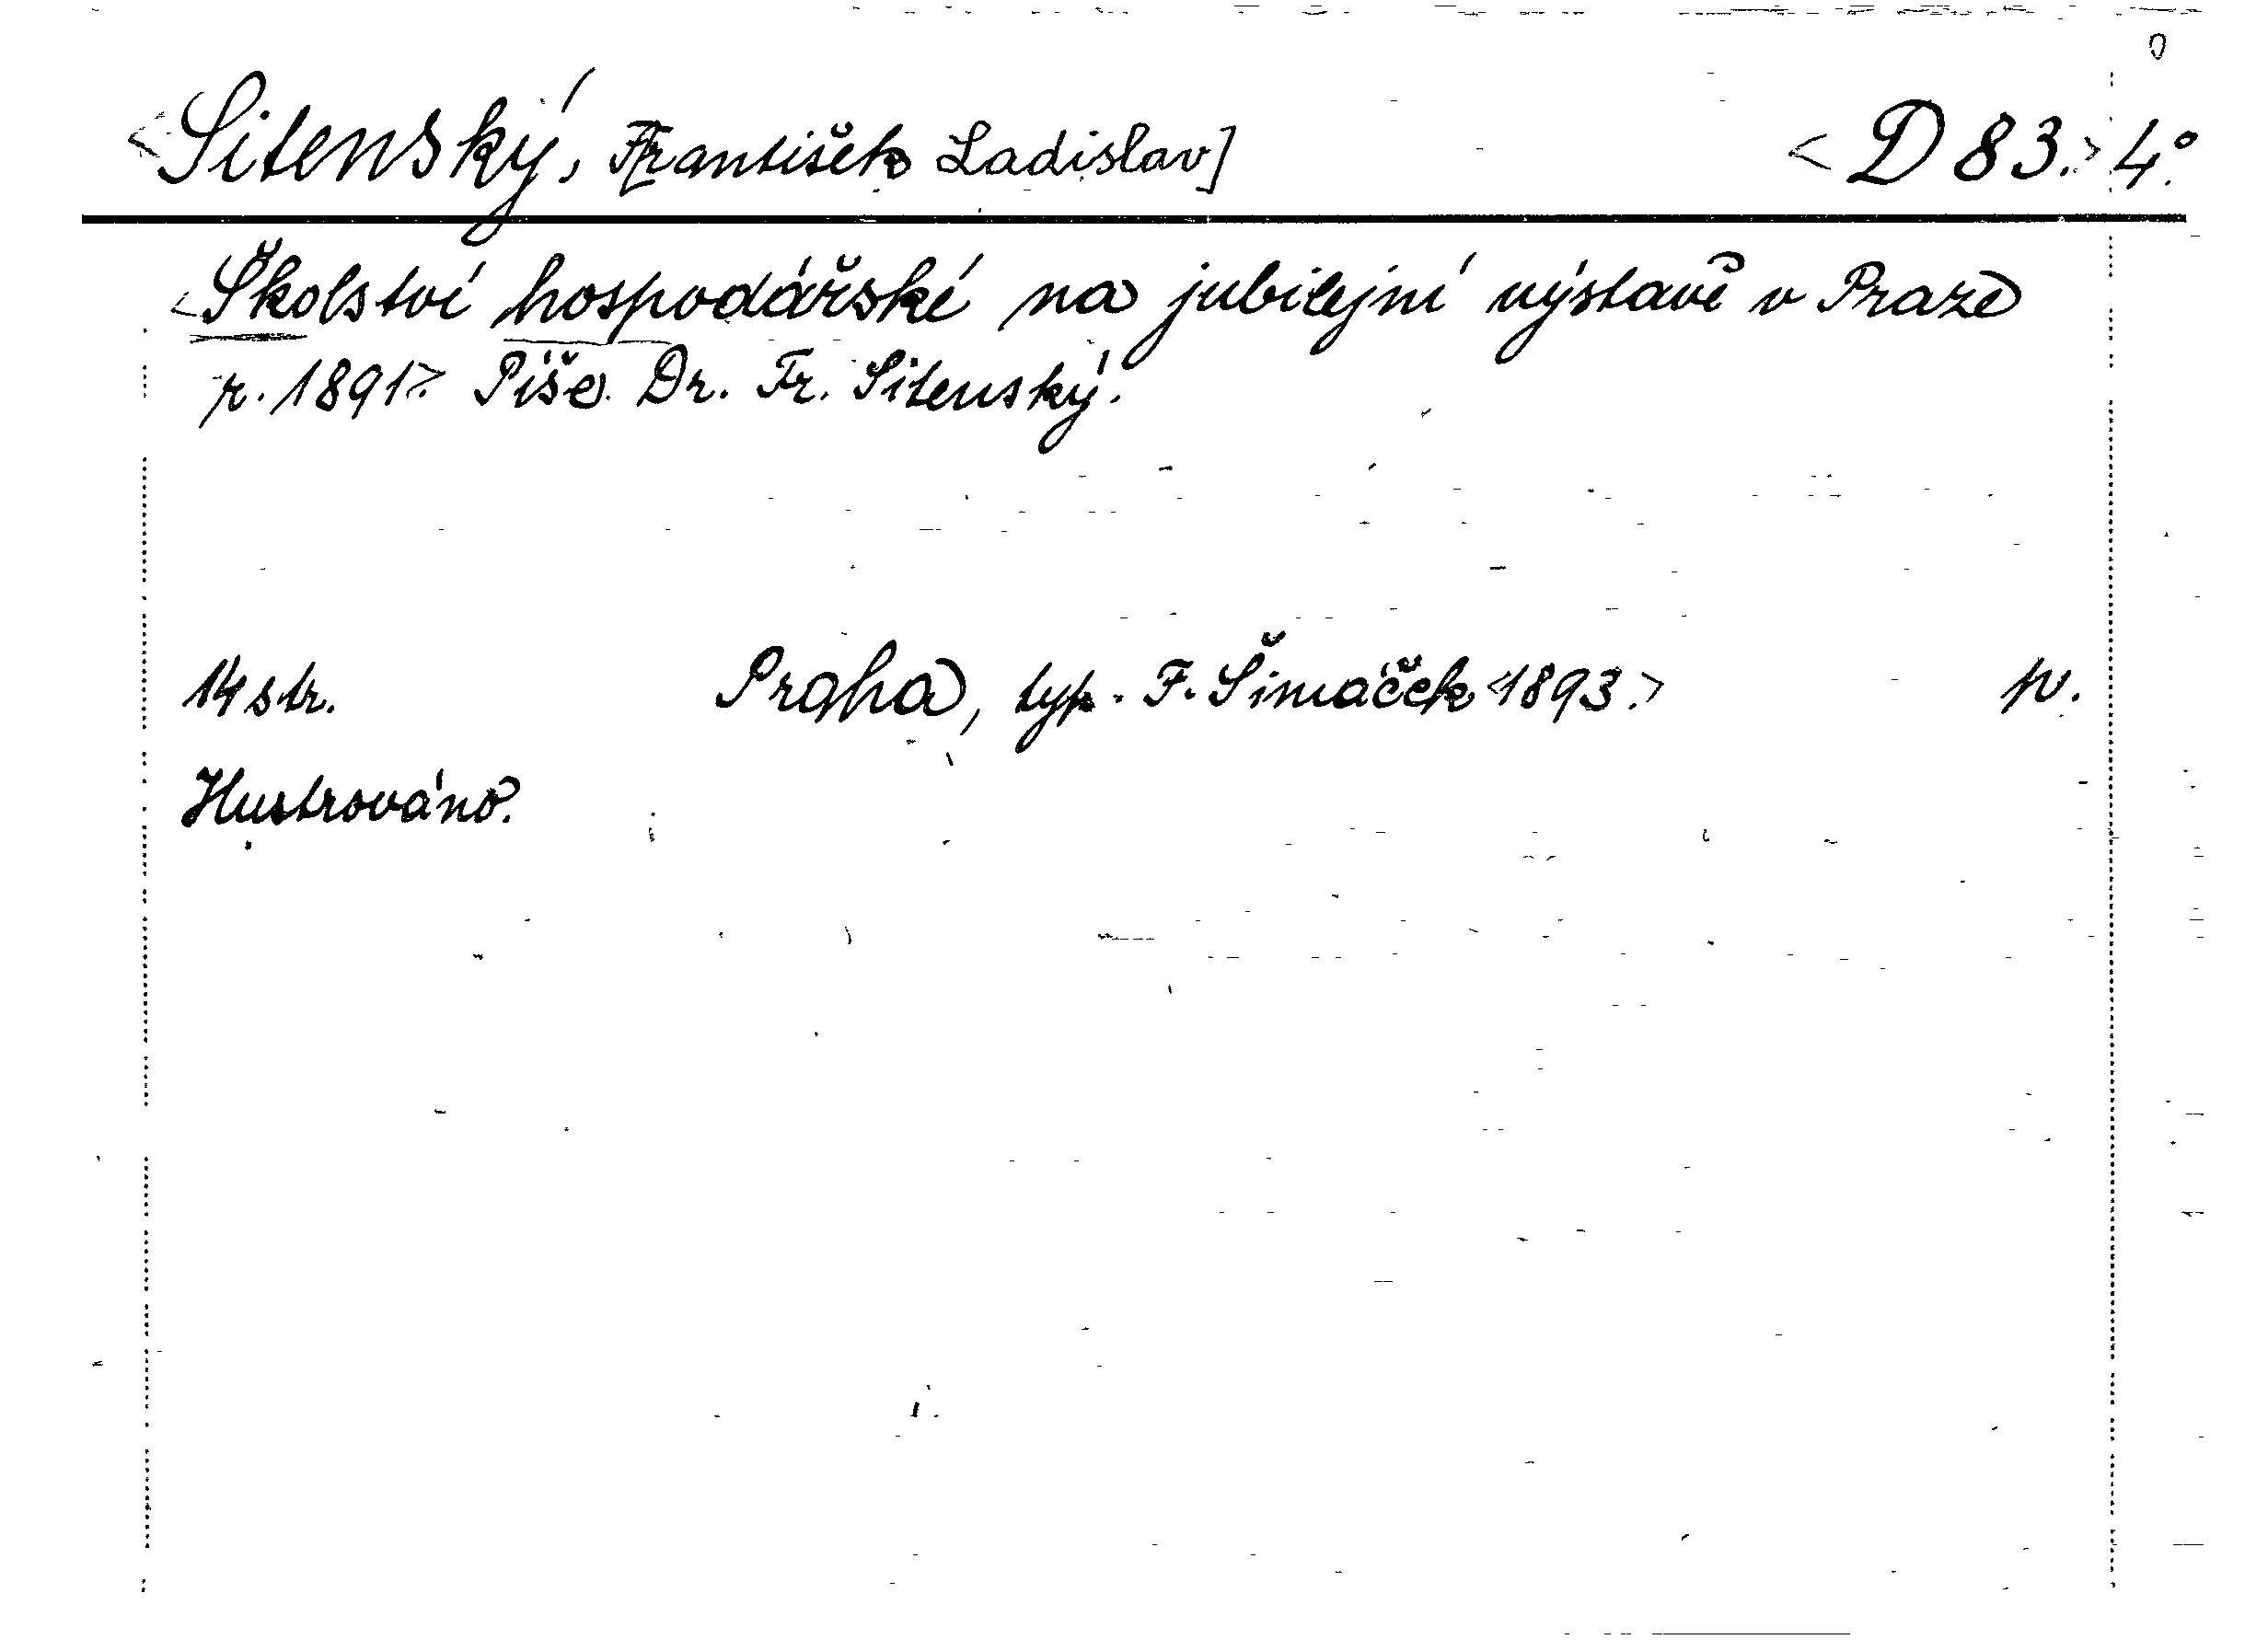 <Sitenský, František Ladislav] <D 83.> 4°.
<Školství hospodářské na jubilejní výstavě v Praze
r. 1891.> Píše Dr. Fr. Sitenský.
14 str. Praha, typ. F. Šimáček <1893.> p.
Illustrováno.